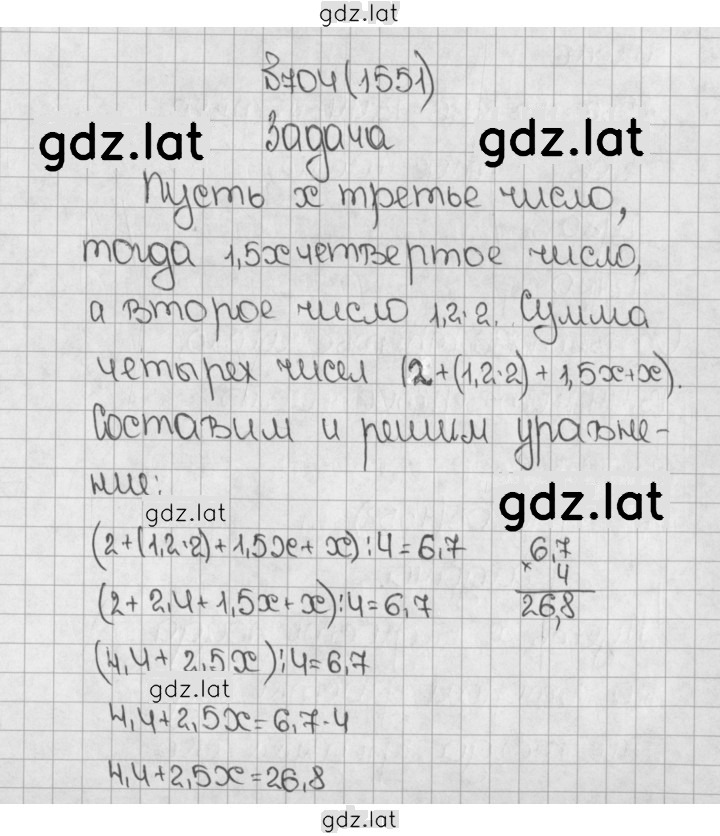 gdz.lat
В704(1551)
gdz.lat Задача gdz.lat
Пусть x третье число,
тогда 1,5x четвертое число,
а второе число 1,2·2. Сумма
четырех чисел (2+(1,2·2)+1,5x+x).
Составим и решим уравне-
ние:
gdz.lat
gdz.lat
(2+(1,2·2)+1,5x+x):4=6,7
6,7
(2+2,4+1,5x+x):4=6,7
× 4
26,8
(4,4+2,5x):4=6,7
gdz.lat
4,4+2,5x=6,7·4
4,4+2,5x=26,8
gdz.lat